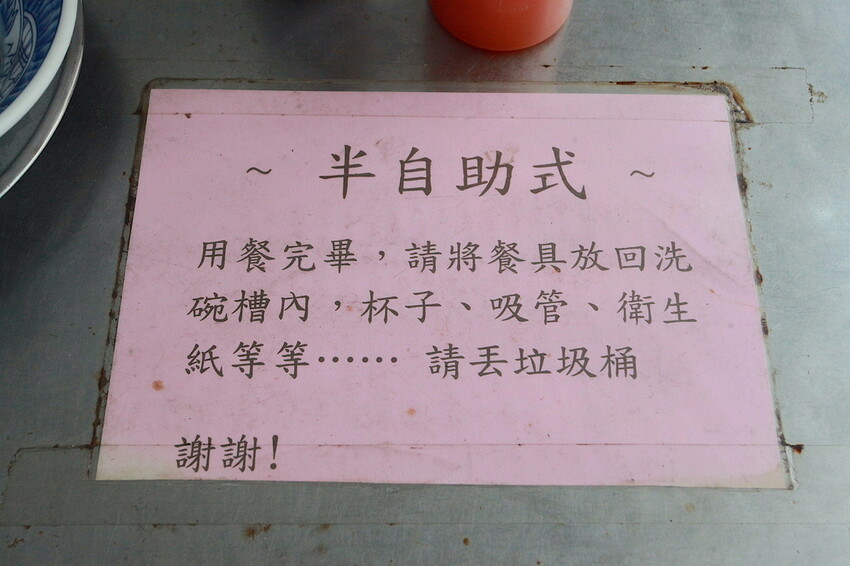 ~ 半自助式 ~
用餐完畢，請將餐具放回洗
碗槽內，杯子、吸管、衛生
紙等等⋯⋯ 請丟垃圾桶
謝謝!